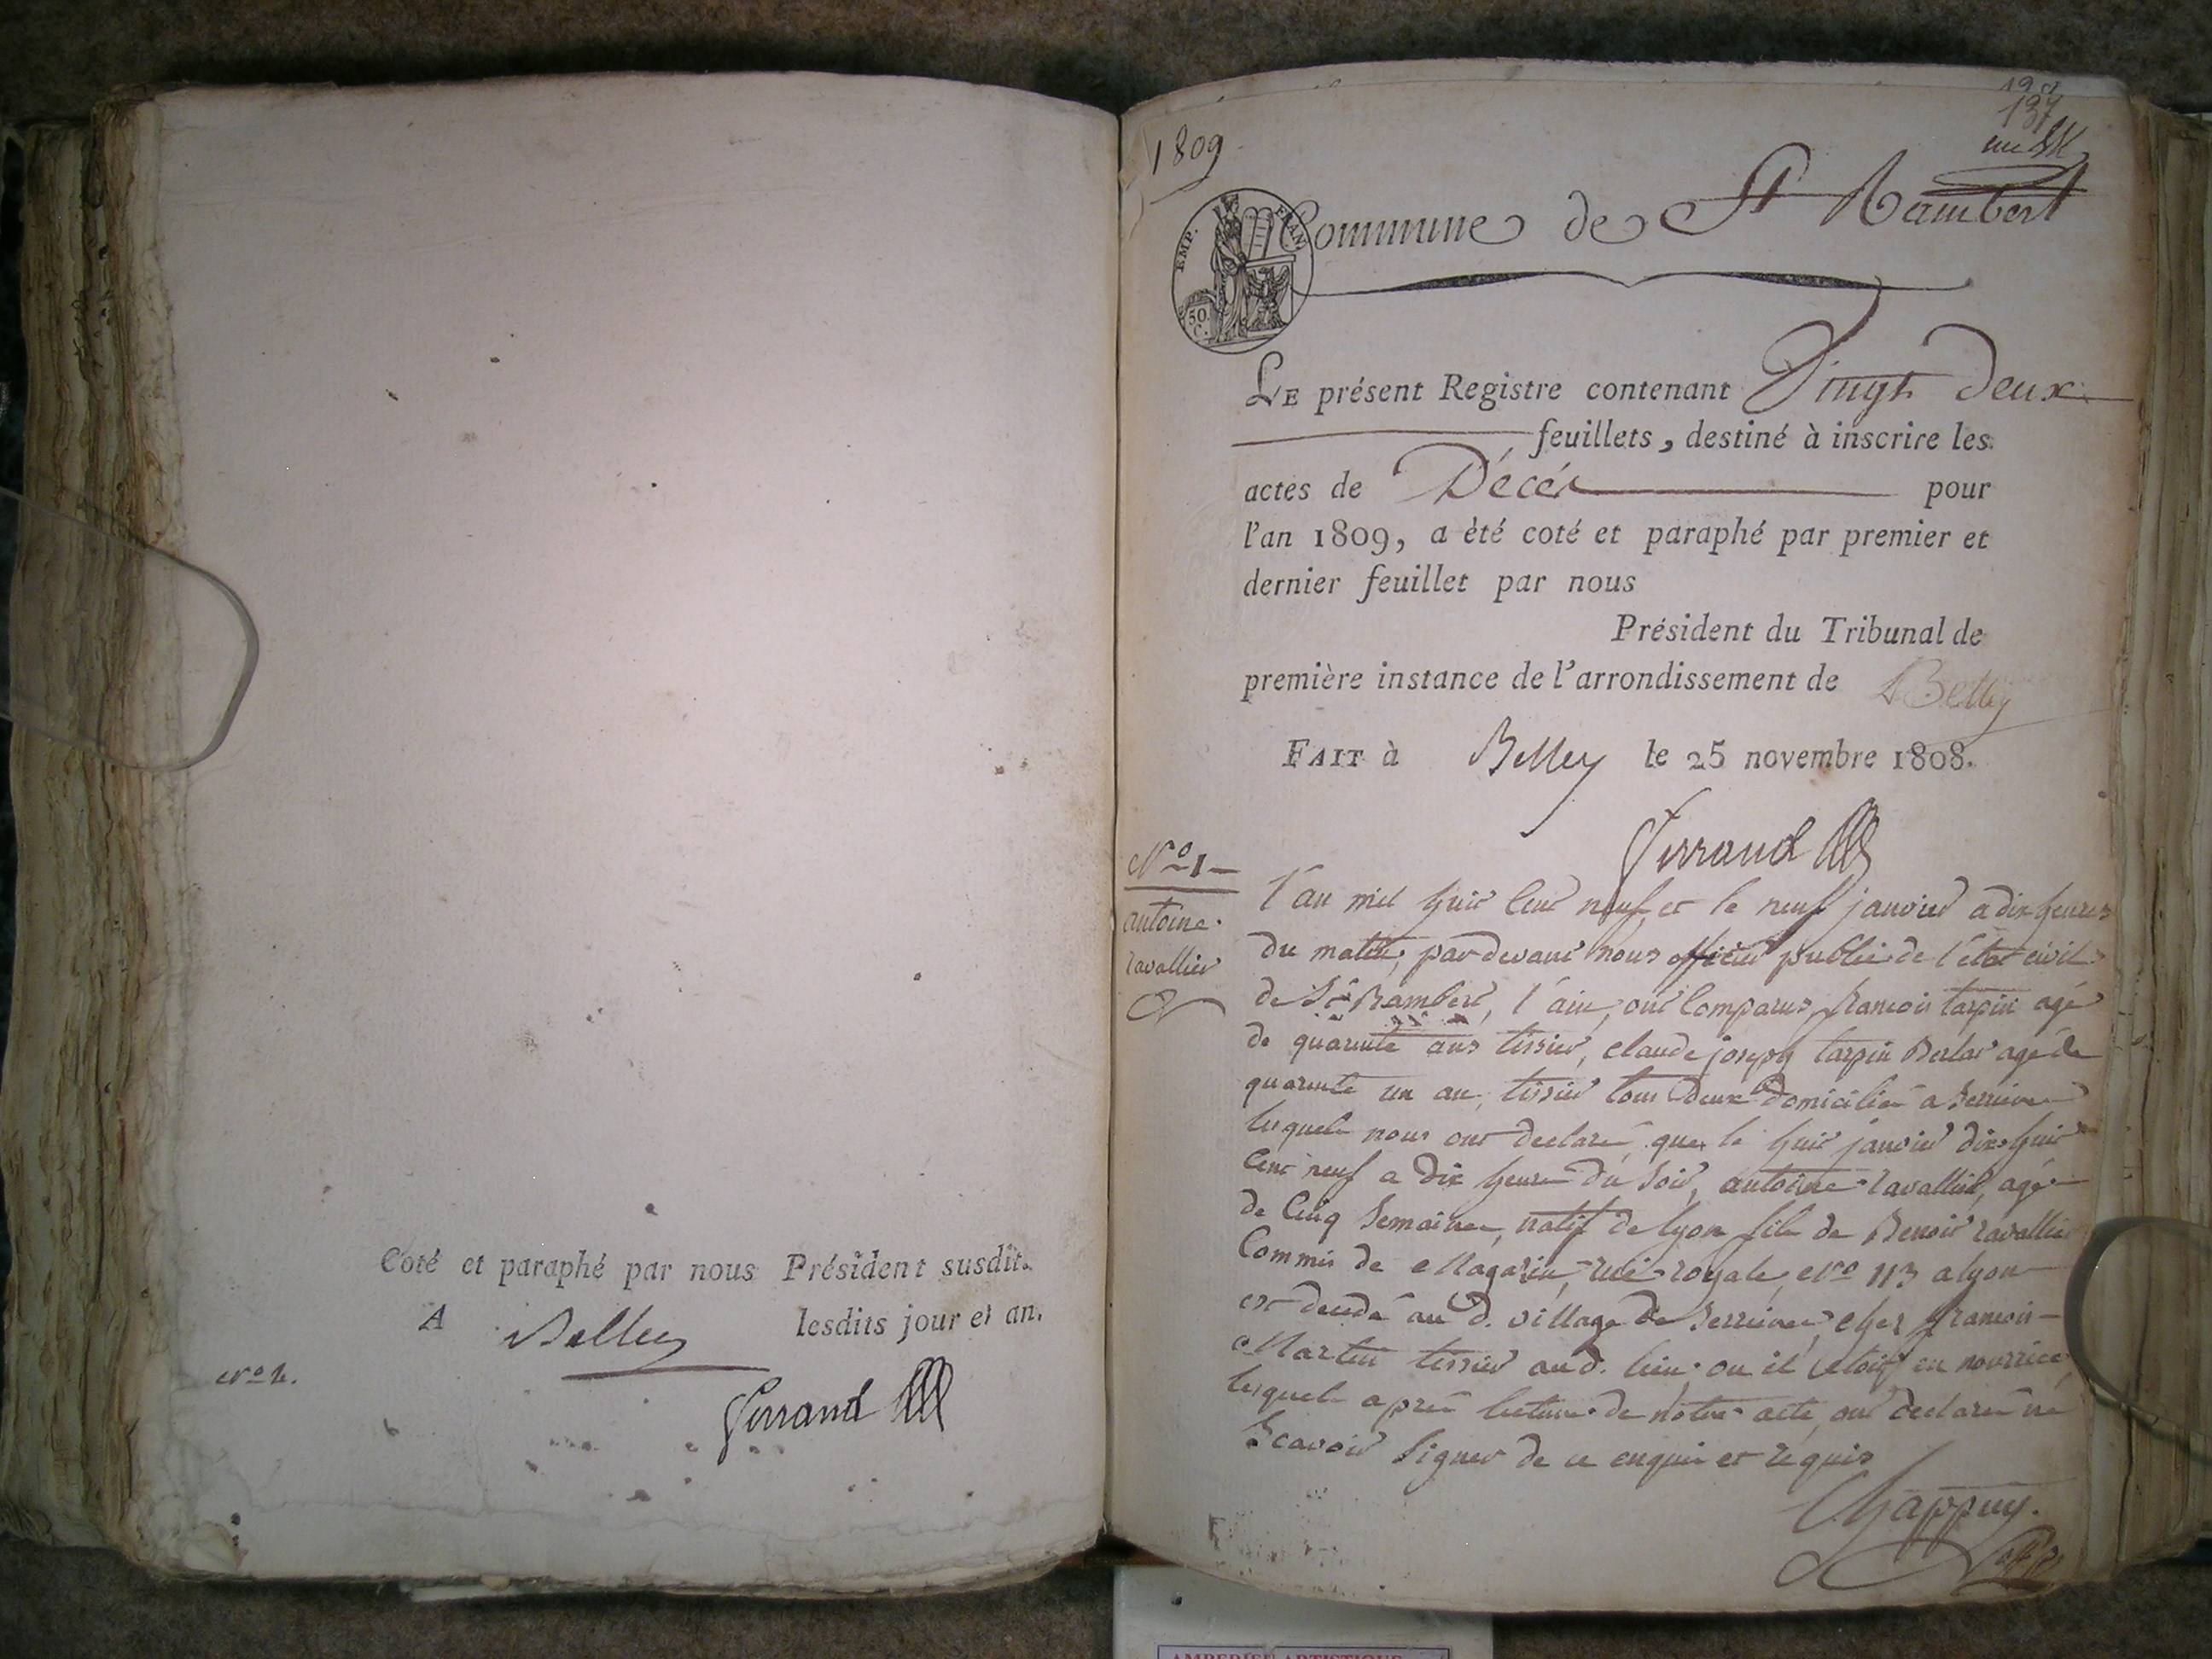 Coté et paraphé par nous Président susdit.
A Belley lesdits jour et an.
Ferrand
1809
137
Commune de St Rambert
EMP. FRAN.
50 C.
LE présent Registre contenant Vingt Deux
feuillets, destiné à inscrire les
actes de Décés pour
l'an 1809, a èté coté et paraphé par premier et
dernier feuillet par nous
Président du Tribunal de
première instance de l'arrondissement de Belley
FAIT à Belley le 25 novembre 1808.
Ferrand
N.o 1
antoine
ravallier
l'an mil huit Cent neuf et le neuf janvier a dix heures
du matin, pardevant nous officier public de l'état civil
de St Rambert, l'ain, ont Comparus, francois tarpin agé
de quarante ans tissier, claude joseph tarpin Berlat agé de
quarante un an, tissier tous deux domiciliés a Serrieres
lesquels nous ont declaré, que le huit janvier dix huit
Cent neuf a dix heures du soir, antoine ravallier, agé
de Cinq Semaines, natif de lyon fils de Benoit ravallier
Commis de Magazin, rue royale, N.o 113 a lyon
est decedé au d. village de Serrieres, chez francois
Martin tissier aud. lieu ou il etoit en nourrice,
lesquels après lecture de notre acte, ont declarés ne
Scavoir Signer de ce enquis et requis
Chappuy.
AMBERIEU ARTISTIQUE